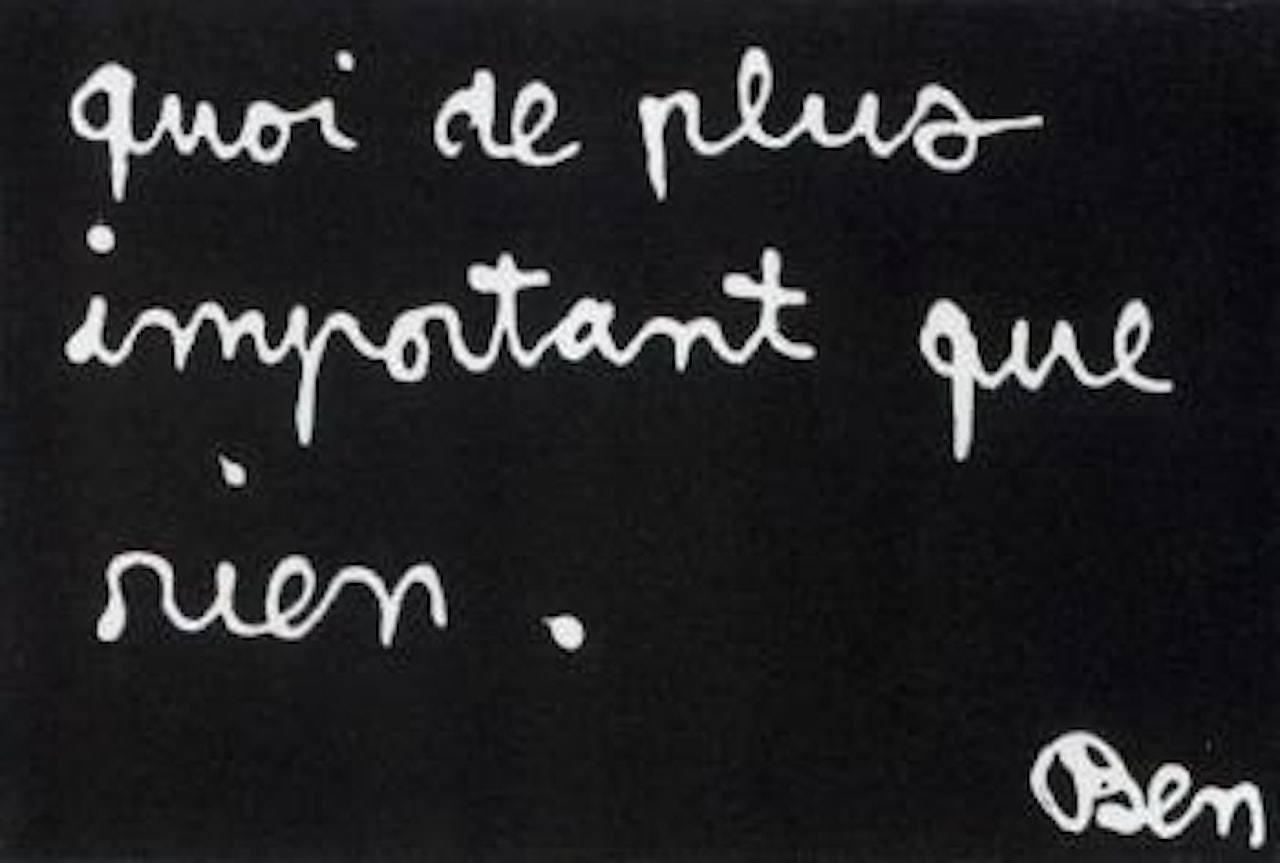 quoi de plus
important que
rien .
Ben